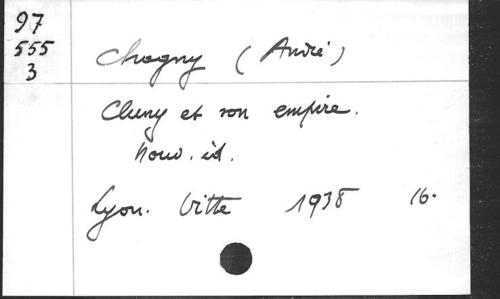 97
555
3
Chagny (André)
Cluny et son empire.
Nouv. éd.
Lyon. Vitte 1938 16.